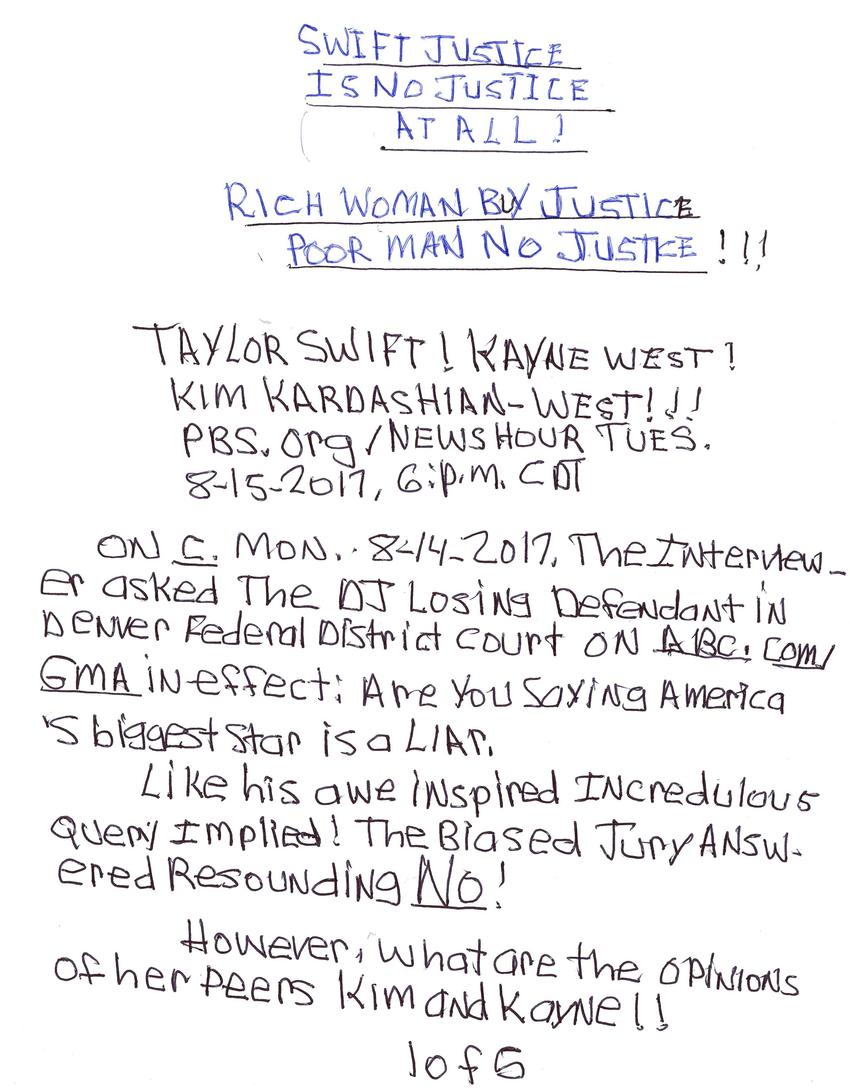 SWIFT JUSTICE
IS NO JUSTICE
AT ALL!
RICH WOMAN BUY JUSTICE
POOR MAN NO JUSTICE!!!
TAYLOR SWIFT! KAYNE WEST!
KIM KARDASHIAN-WEST!!!
PBS.org/NEWSHOUR TUES.
8-15-2017, 6:p.m. CDT
ON C. MON. 8-14-2017, The Interview-
er asked The DJ Losing Defendant in
Denver Federal District Court ON ABC.com/
GMA in effect: Are You Saying America
's biggest Star is a LIAr.
Like his awe inspired INcredulous
Query Implied! The Biased Jury ANSW-
ered Resounding No!
However, what are the opinions
of her peers Kim and Kayne!!
1 of 5